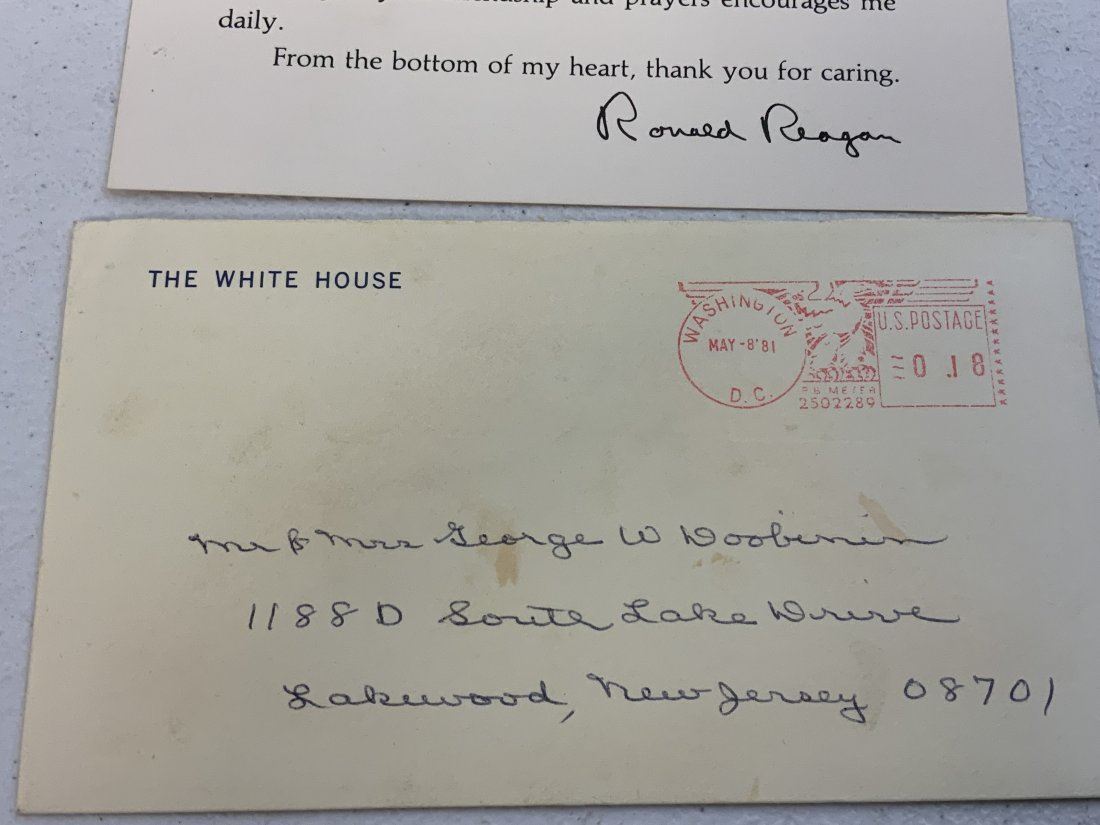 and prayers encourages me
daily.
From the bottom of my heart, thank you for caring.
Ronald Reagan
THE WHITE HOUSE
WASHINGTON
MAY -8'81
D.C.
U.S. POSTAGE
0.18
P B METER
2502289
Mr & Mrs George W Doobinin
1188 D South Lake Drive
Lakewood, New Jersey 08701